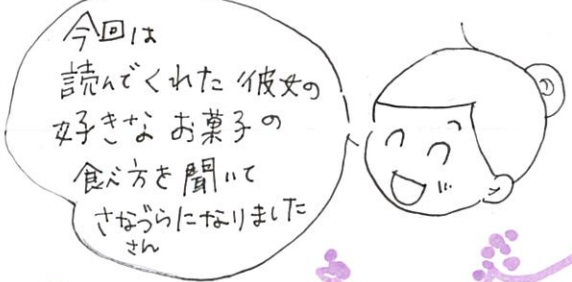 今回は
読んでくれた彼女の
好きなお菓子の
食べ方を聞いて
さなづらになりました
さん